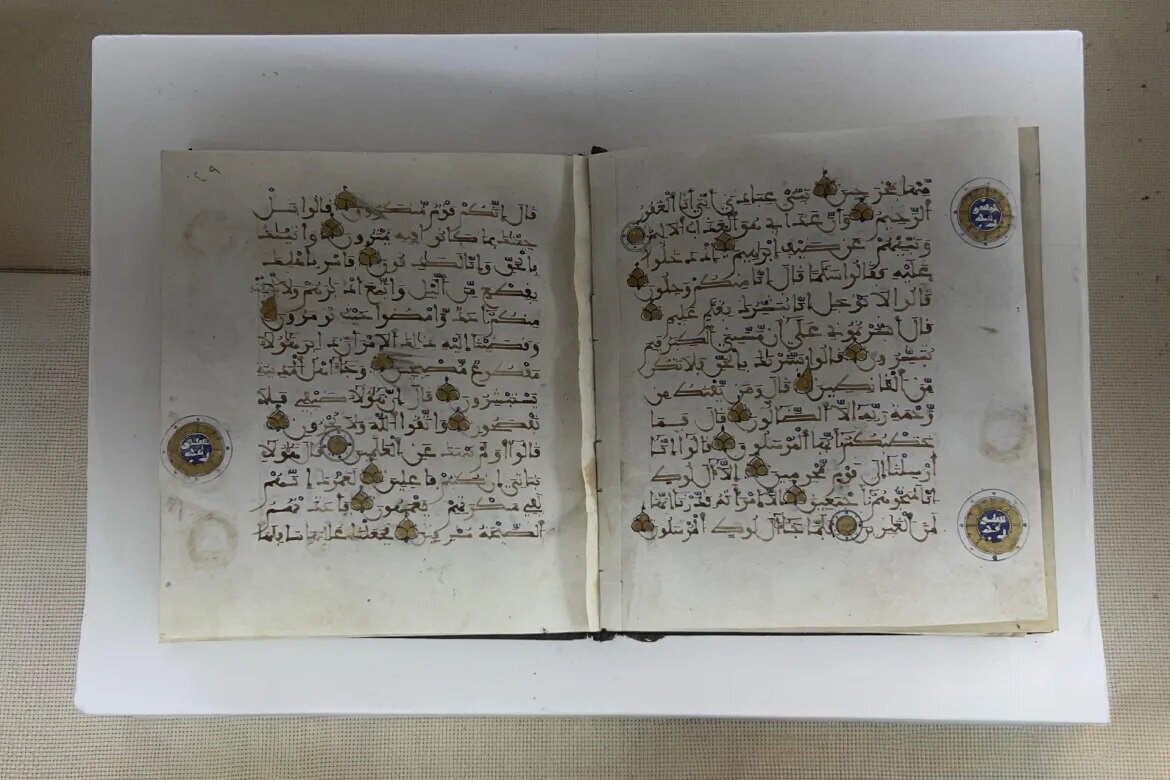 منها بمخرجين نبئ عبادي أني أنا الغفور
الرحيم وأن عذابي هو العذاب الأليم
ونبئهم عن ضيف إبراهيم إذ دخلوا
عليه فقالوا سلما قال إنا منكم وجلون
قالوا لا توجل إنا نبشرك بغلم عليم
قال أبشرتموني على أن مسني الكبر فبم
تبشرون قالوا بشرنك بالحق فلا تكن
من القنطين قال ومن يقنط من
رحمة ربه إلا الضالون قال فما
خطبكم أيها المرسلون قالوا إنا
أرسلنا إلى قوم مجرمين إلا آل لوط
إنا لمنجوهم أجمعين إلا امرأته قدرنا إنها
لمن الغبرين فلما جاء آل لوط المرسلون
قال إنكم قوم منكرون قالوا بل
جئنك بما كانوا فيه يمترون وأتينك
بالحق وإنا لصدقون فأسر بأهلك
بقطع من الليل واتبع أدبرهم ولا يلتفت
منكم أحد وامضوا حيث تومرون
وقضينا إليه ذلك الأمر أن دابر هؤلاء
مقطوع مصبحين وجاء أهل المدينة
يستبشرون قال إن هؤلاء ضيفي فلا
تفضحون واتقوا الله ولا تخزون
قالوا أولم ننهك عن العلمين قال هؤلاء
بناتي إن كنتم فعلين لعمرك إنهم
لفي سكرتهم يعمهون فأخذتهم
الصيحة مشرقين فجعلنا عليها سافلها